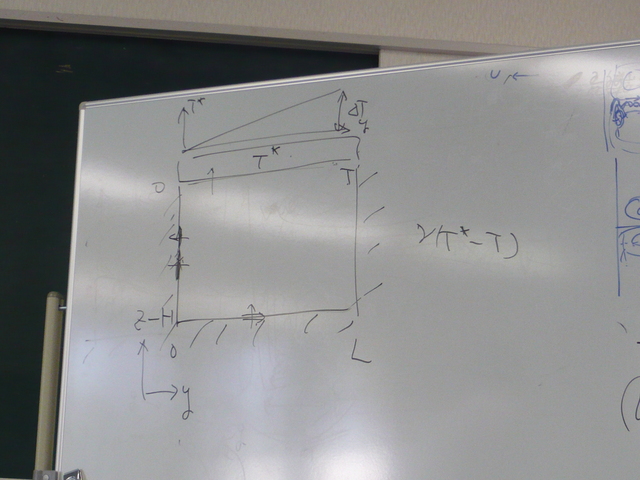 T*
ΔT
y
T*
0
T
γ(T*-T)
z-H
0
L
y